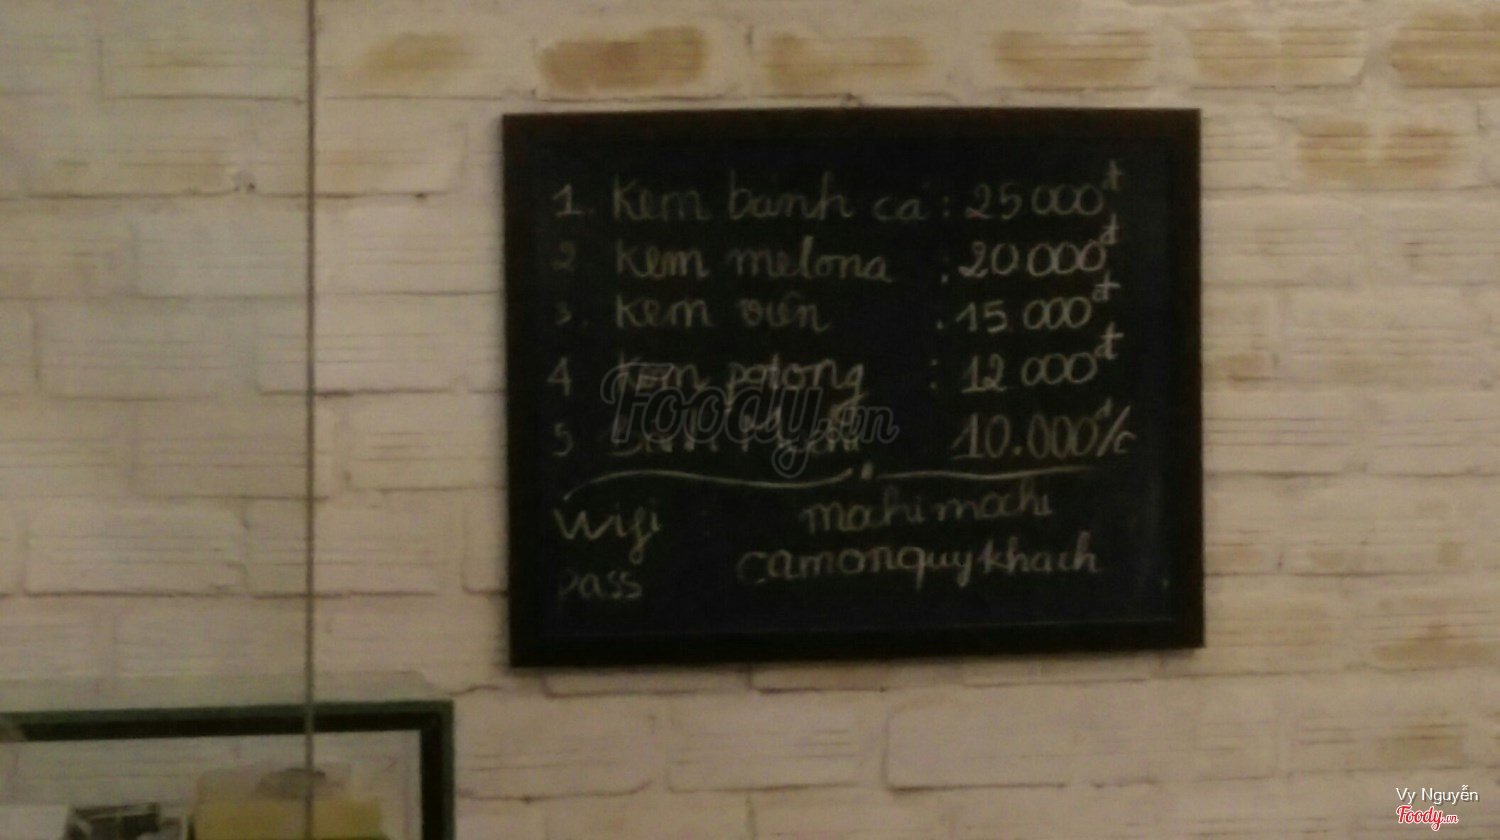 1. Kem bánh cá : 25 000đ
2 Kem melona : 20 000đ
3. Kem viên : 15 000đ
4 Kem potong : 12 000đ
5 10.000đ/c
Wifi mahimachi
pass camonquykhach
Foody.vn
Vy Nguyễn
Foody.vn